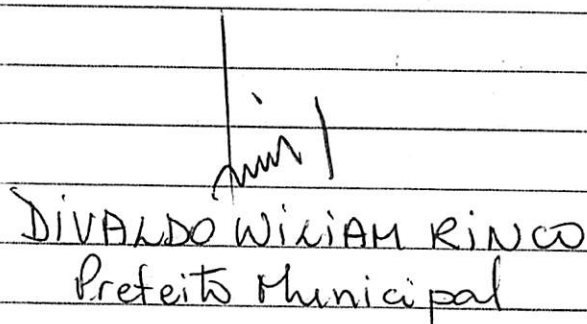 DIVALDO WILIAM RINCO
Prefeito Municipal